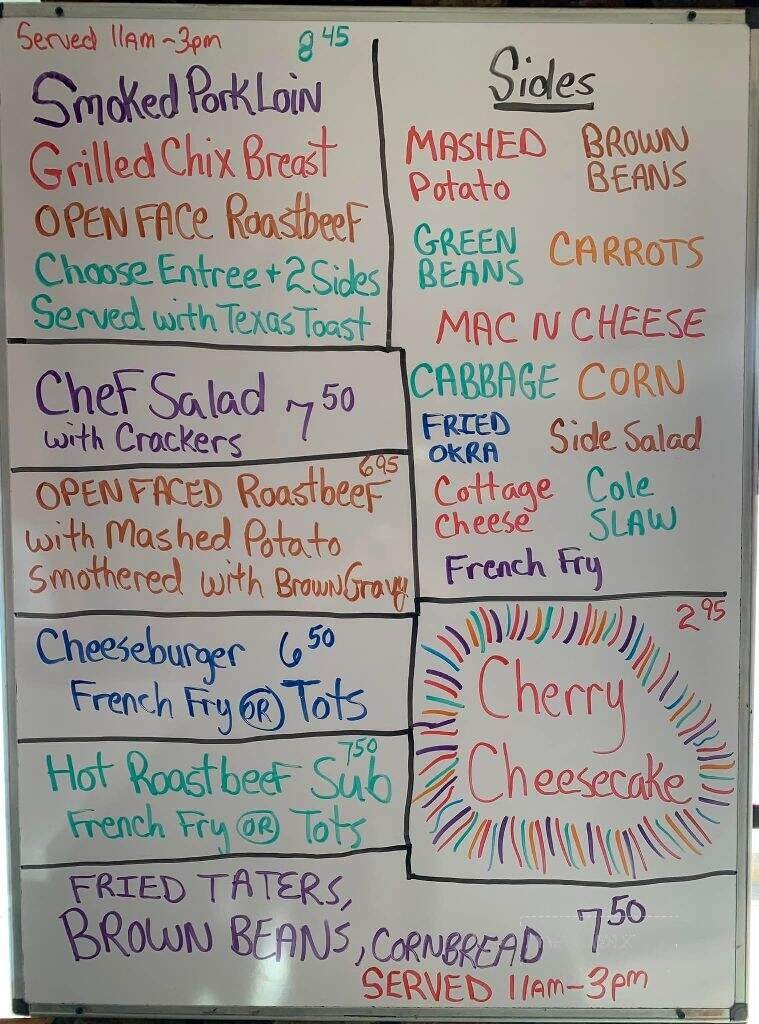 Served 11am-3pm 8 45
Smoked Pork Loin
Grilled Chix Breast
OPEN FACE Roastbeef
Choose Entree + 2 Sides
Served with Texas Toast
Chef Salad 7 50
with Crackers
6 95
OPEN FACED Roastbeef
with Mashed Potato
Smothered with Brown Gravy
Cheeseburger 6 50
French Fry OR Tots
7 50
Hot Roastbeef Sub
French Fry OR Tots
Sides
MASHED BROWN
Potato BEANS
GREEN CARROTS
BEANS
MAC N CHEESE
CABBAGE CORN
FRIED Side Salad
OKRA
Cottage Cole
Cheese SLAW
French Fry
2 95
Cherry
Cheesecake
FRIED TATERS,
BROWN BEANS, CORNBREAD 7 50
SERVED 11AM-3pm